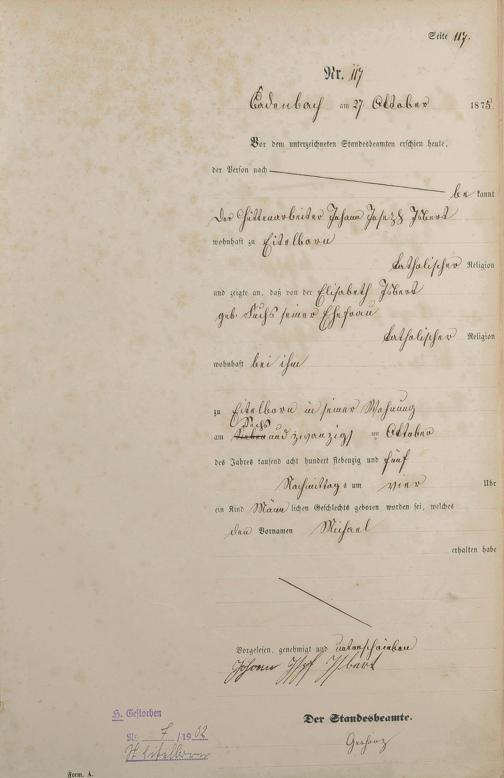 Seite 117.
Nr. 117
Cadenbach am 27 Oktober 1875
Vor dem unterzeichneten Standesbeamten erschien heute,
der Person nach
be kannt
der Hüttenarbeiter Johann Joseph Isbert
wohnhaft zu Eitelborn
katholischer Religion
und zeigte an, daß von der Elisabeth Isbert
geb. Fuchs seiner Ehefrau
katholischer Religion
wohnhaft bei ihm
zu Eitelborn in seiner Wohnung
sechs
am sieben und zwanzigs ten Oktober
des Jahres tausend acht hundert siebenzig und fünf
Nachmittags um vier Uhr
ein Kind Männ lichen Geschlechts geboren worden sei, welches
den Vornamen Michael
erhalten habe
Vorgelesen, genehmigt und unterschrieben
Johann Josef Isbert
Der Standesbeamte.
H. Gestorben
Nr. 7 /19 32
St Eitelborn
Form. A.